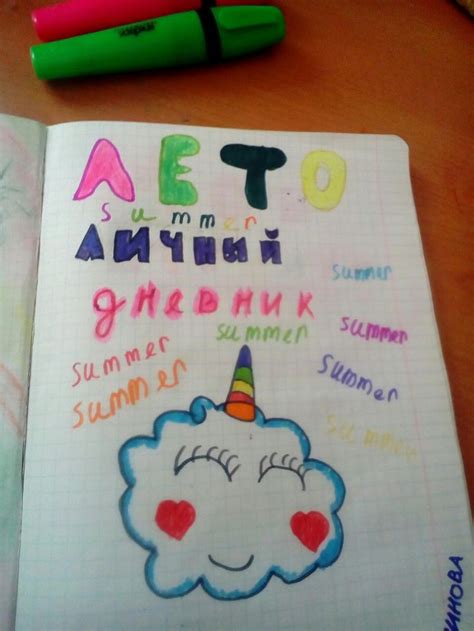 ЛЕТО
summer
ЛИЧНЫЙ
summer
дневник
summer
summer
summer
summer
summer
summer